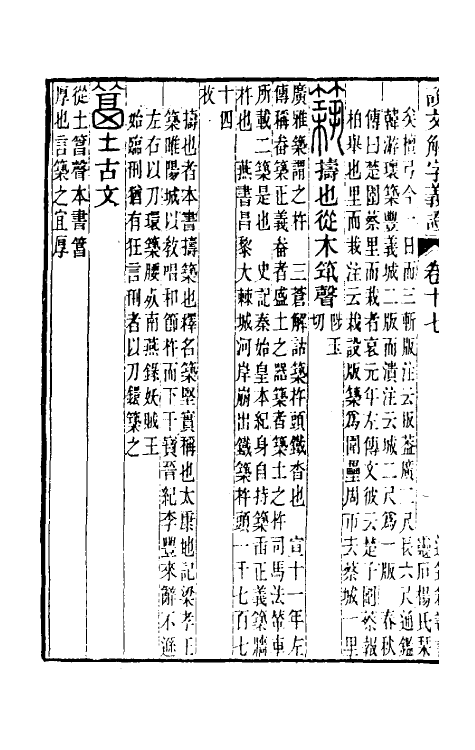 說文解字義證 卷十七
矣檀弓今一日而三斬版注云版蓋廣二尺長六尺通鑑
韓游瓌築豐義城二版而潰注云城二尺為一版 春秋
傳曰楚圍蔡里而栽者哀元年左傳文彼云楚子圍蔡報
柏舉也里而栽注云栽設版築為圍壘周帀去蔡城一里
築 擣也從木筑聲 陟玉切
廣雅築謂之杵 三蒼解詁築杵頭鐵沓也 宣十一年左
傳稱畚築正義畚者盛土之器築者築土之杵司馬法輦車
所載二築是也 史記秦始皇本紀身自持築臿正義築牆
杵也 燕書昌黎大棘城河岸崩出鐵築杵頭一千七百七
十四
枚
擣也者本書擣築也釋名築堅實稱也太康地記梁孝王
築睢陽城以敎唱和節杵而下干寶晉紀李豐來辭不遜
左右以刀環築腰炊南燕錄妖賊王
始臨刑猶有狂言刑者以刀鐶築之
𥫣 古文
從土𥫣聲本書𥫣
厚也言築之宜厚